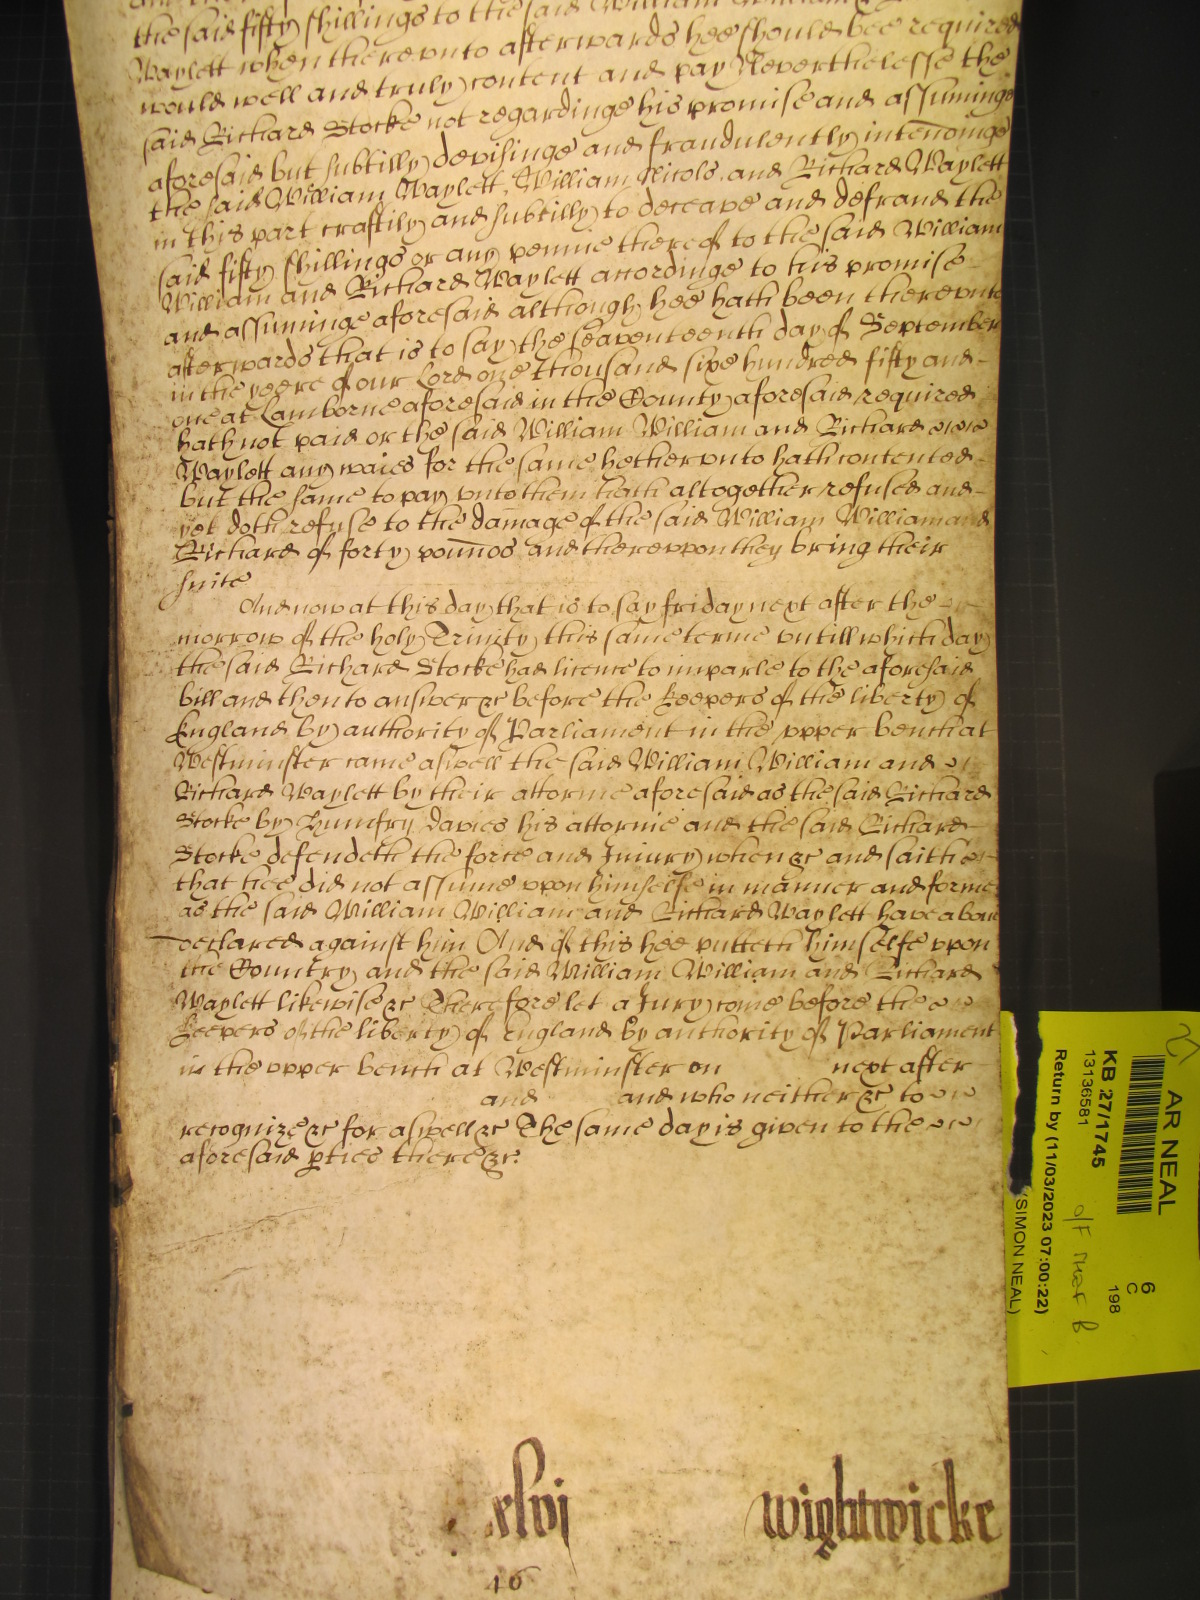 the said fifty shillings to the said William William
Waylett when therevnto afterwards hee should bee required
would well and truly content and pay Neverthelesse the
said Richard Stocke not regardinge his promise and assuminge
aforesaid but subtilly devisinge and fraudulently intendinge
the said William Waylett, William Nicols and Richard Waylett
in this part craftily and subtilly to deceave and defraud the
said fifty shillings or any pennie thereof to the said William
William and Richard Waylett accordinge to his promise
and assuminge aforesaid although hee hath been therevnto
afterwards that is to say the seaventeenth day of September
in the yeere of our Lord one thousand sixe hundred fifty and
one at Lamborne aforesaid in the County aforesaid required
hath not paid or the said William William and Richard
Waylett any waies for the same hethervnto hath contented
but the same to pay vnto them hath altogether refused and
yet doth refuse to the damage of the said William William and
Richard of forty pounds and therevpon they bring their
suite
And now at this day that is to say friday next after the
morrow of the holy Trinity this same terme vntill which day
the said Richard Stocke had licence to imparle to the aforesaid
bill and then to answer &c before the keepers of the liberty of
England by authority of Parliament in the vpper bench at
Westminster came aswell the said William William and
Richard Waylett by their attornie aforesaid as the said Richard
Stocke by Humfry Davies his attornie and the said Richard
Stocke defendeth the force and Iniury when &c and saith
that hee did not assume vpon himselfe in manner and forme
as the said William William and Richard Waylett have above
declared against him And of this hee putteth himselfe vpon
the Country and the said William William and Richard
Waylett likewise &c Therefore let a Jury come before the
keepers of the liberty of England by authority of Parliament
in the vpper bench at Westminster on next after
and and who neither &c to
recognize &c for aswell &c The same day is given to the
aforesaid pties there &c.
xlvi wightwicke
46
AR NEAL
KB 27/1745
13136581
Return by (11/03/2023 07:00:22)
(SIMON NEAL)
6
C
198